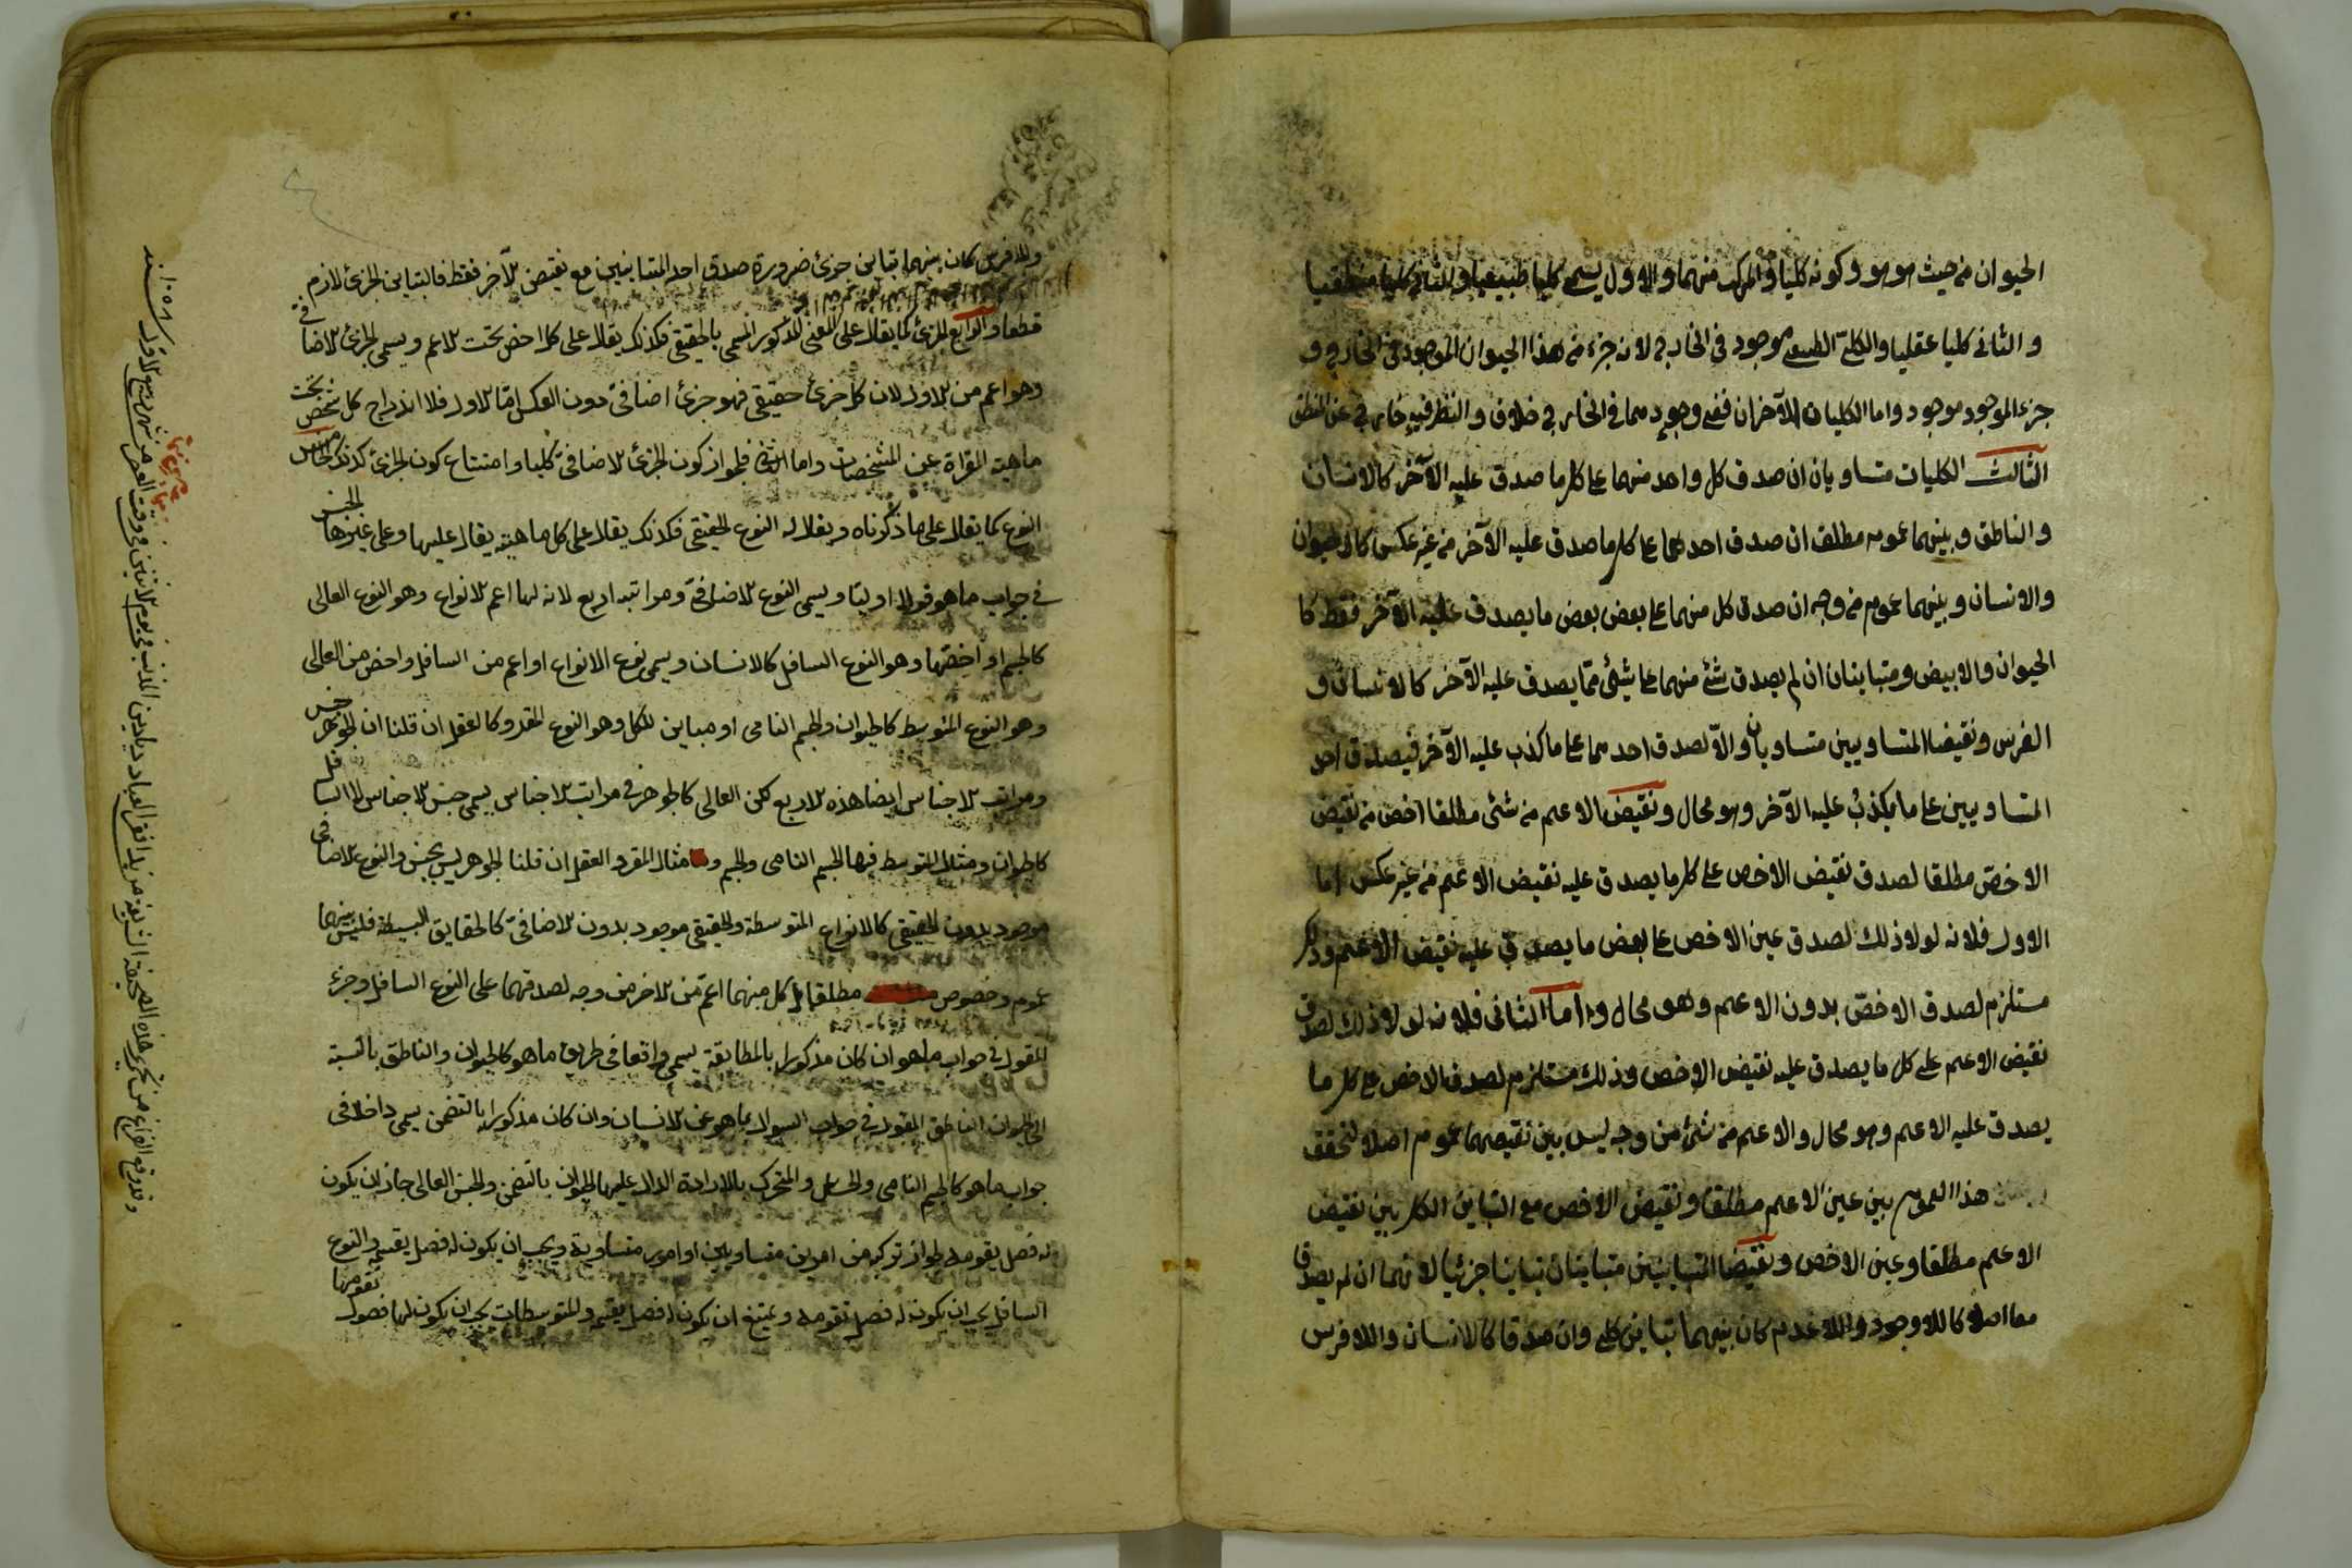 الحيوان من حيث هو هو وكونه كليا والمركب منهما والاول يسمى كليا طبيعيا والثانى كليا منطقيا
والثانى كليا عقليا والكلى الطبيعى موجود فى الخارج لانه جزء من هذا الحيوان الموجود فى الخارج و
جزء الموجود موجود واما الكليان الآخران ففى وجودهما فى الخارج خلاف والنظر فيه خارج عن المنطق
الثالث الكليات متساويان ان صدق كل واحد منهما على كل ما صدق عليه الآخر كالانسان
والناطق وبينهما عموم مطلق ان صدق احدهما على كل ما صدق عليه الآخر من غير عكس كالحيوان
والانسان وبينهما عموم من وجه ان صدق كل منهما على بعض بعض ما يصدق عليه الآخر فقط كا
الحيوان والابيض ومتباينان ان لم يصدق شئ منهما على شيئ مما يصدق عليه الآخر كالانسان و
الفرس ونقيضا المتساويين متساويان والا لصدق احدهما على ما كذب عليه الآخر فيصدق احد
المتساويين على ما يكذب عليه الآخر وهو محال ونقيض الاعم من شئ مطلقا اخص من نقيض
الاخص مطلقا لصدق نقيض الاخص على كل ما يصدق عليه نقيض الاعم من غير عكس اما
الاول فلانه لولا ذلك لصدق عين الاخص على بعض ما يصدق عليه نقيض الاعم وذلك
مستلزم لصدق الاخص بدون الاعم وهو محال واما الثانى فلانه لولا ذلك لصدق
نقيض الاعم على كل ما يصدق عليه نقيض الاخص وذلك مستلزم لصدق الاخص على كل ما
يصدق عليه الاعم وهو محال والاعم من شئ من وجه ليس بين نقيضهما عموم اصلا لتحقق
هذا العموم بين عين الاعم مطلقا ونقيض الاخص مع التباين الكلى بين نقيض
الاعم مطلقا وعين الاخص ونقيضا المتباينين متباينان تباينا جزئيا لانهما ان لم يصدقا
معا اصلا كاللاوجود واللاعدم كان بينهما تباين كلى وان صدقا كالانسان واللافرس
وللافرس كان بينهما تباين جزئ ضرورة صدق احد المتباينين مع نقيض الآخر فقط فالتباين الجزئ لازم
قطعا والرابع الجزئ كما يقال على المعنى المذكور المسمى بالحقيقى فكذلك يقال على كل اخص تحت الاعم ويسمى الجزئ الاضافى
وهو اعم من الاول لان كل جزئ حقيقى فهو جزئ اضافى دون العكس اما الاول فلاندراج كل شخص تحت
ماهيته المعراة عن المشخصات واما الثانى فلجواز كون الجزئ الاضافى كليا وامتناع كون الجزئ كذلك الخامس
النوع كما يقال على ما ذكرناه ويقال له النوع الحقيقى فكذلك يقال على كل ماهية يقال عليها وعلى غيرها الجنس
فى جواب ما هو قولا اوليا ويسمى النوع الاضافى ومراتبه اربع لانه اما اعم الانواع وهو النوع العالى
كالجسم او اخصها وهو النوع السافل كالانسان ويسمى نوع الانواع او اعم من السافل واخص من العالى
وهو النوع المتوسط كالحيوان والجسم النامى او مباين للكل وهو النوع المفرد كالعقل ان قلنا ان الجوهر جنس
ومراتب الاجناس ايضا هذه الاربع لكن العالى كالجوهر فى مراتب الاجناس يسمى جنس الاجناس لا السافل
كالحيوان ومثال المتوسط فيها الجسم النامى والجسم ومثال المفرد العقل ان قلنا الجوهر ليس بجنس والنوع الاضافى
موجود بدون الحقيقى كالانواع المتوسطة والحقيقى موجود بدون الاضافى كالحقايق البسيطة فليس بينهما
عموم وخصوص مطلقا بل كل منهما اعم من الاخر من وجه لصدقهما على النوع السافل وجزء
المقول فى جواب ما هو ان كان مذكورا بالمطابقة يسمى واقعا فى طريق ما هو كالحيوان والناطق بالنسبة
الى الحيوان الناطق المقول فى جواب السوال بما هو عن الانسان وان كان مذكورا بالتضمن يسمى داخلا فى
جواب ما هو كالجسم النامى والحساس والمتحرك بالارادة الدال عليها الحيوان بالتضمن والجنس العالى جاز ان يكون
له فصل يقومه لجواز تركبه من امرين متساويين او امور متساوية ويجب ان يكون له فصل يقسمه والنوع
السافل يجب ان يكون له فصل تقومه ويمتنع ان يكون له فصل يقسمه والمتوسطات يجب ان يكون لها فصول تقومها
وقد وقع الفراغ من تحرير هذه الصحيفة الشريفة من يد افقر العباد المذنب فى يوم الاثنين فى وقت العصر من شهر ربيع الاول سنه ١٠٥٨